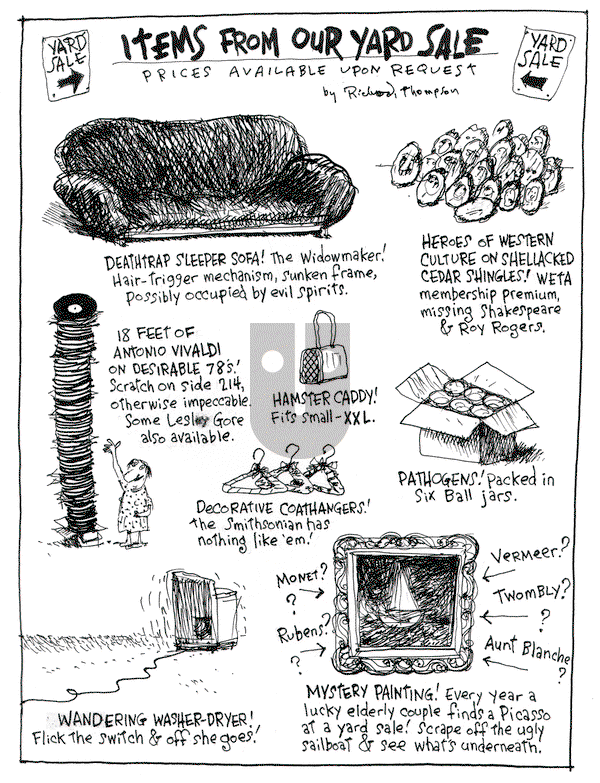 YARD SALE
ITEMS FROM OUR YARD SALE
YARD SALE
PRICES AVAILABLE UPON REQUEST
by Richard Thompson
DEATHTRAP SLEEPER SOFA! The Widowmaker!
Hair-Trigger mechanism, sunken frame,
possibly occupied by evil spirits.
HEROES OF WESTERN
CULTURE ON SHELLACKED
CEDAR SHINGLES! WETA
membership premium,
missing Shakespeare
& Roy Rogers.
18 FEET OF
ANTONIO VIVALDI
ON DESIRABLE 78's!
Scratch on side 214,
otherwise impeccable.
Some Lesley Gore
also available.
HAMSTER CADDY!
Fits small-XXL.
PATHOGENS! packed in
Six Ball jars.
DECORATIVE COATHANGERS!
the Smithsonian has
nothing like 'em!
MONET?
?
Rubens?
?
VERMEER?
TWOMBLY?
?
Aunt Blanche?
WANDERING WASHER-DRYER!
Flick the switch & off she goes!
MYSTERY PAINTING! Every year a
lucky elderly couple finds a Picasso
at a yard sale! Scrape off the ugly
sailboat & see what's underneath.